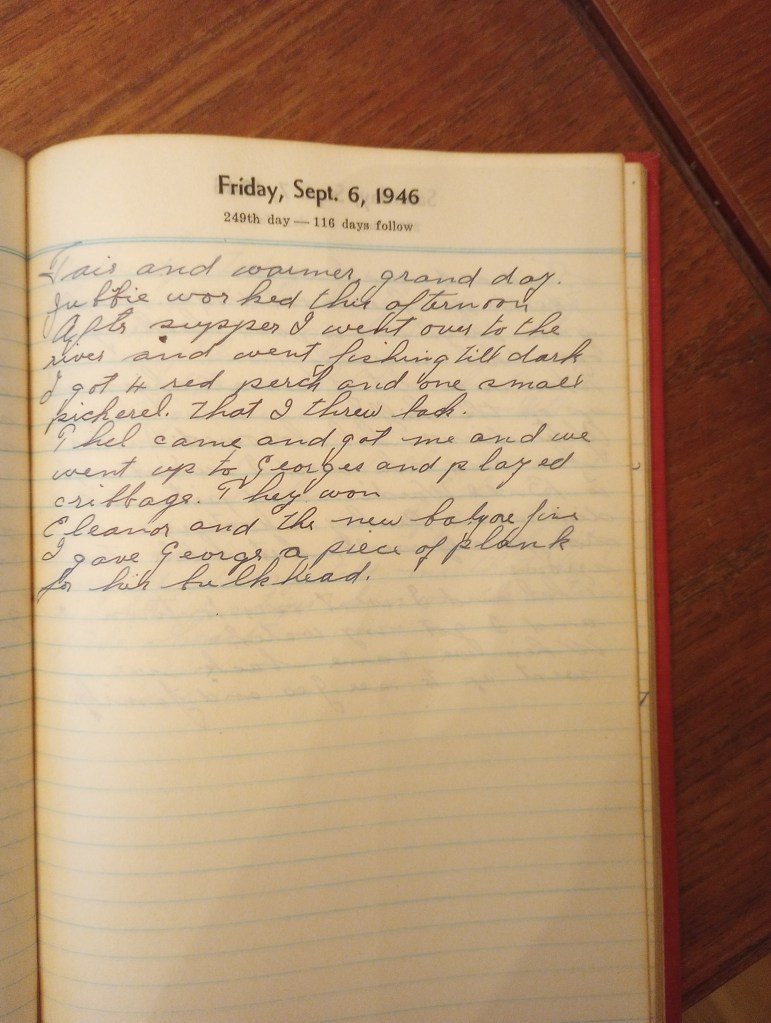 Friday, Sept. 6, 1946
249th day — 116 days follow
Fair and warmer, grand day.
worked this afternoon
After supper I went over to the
river and went fishing till dark
I got 4 red perch and one small
pickerel. that I threw back.
Thel came and got me and we
went up to Georges and played
cribbage. They won
Eleanor and the new baby are fine
I gave George a piece of plank
for his bulkhead.